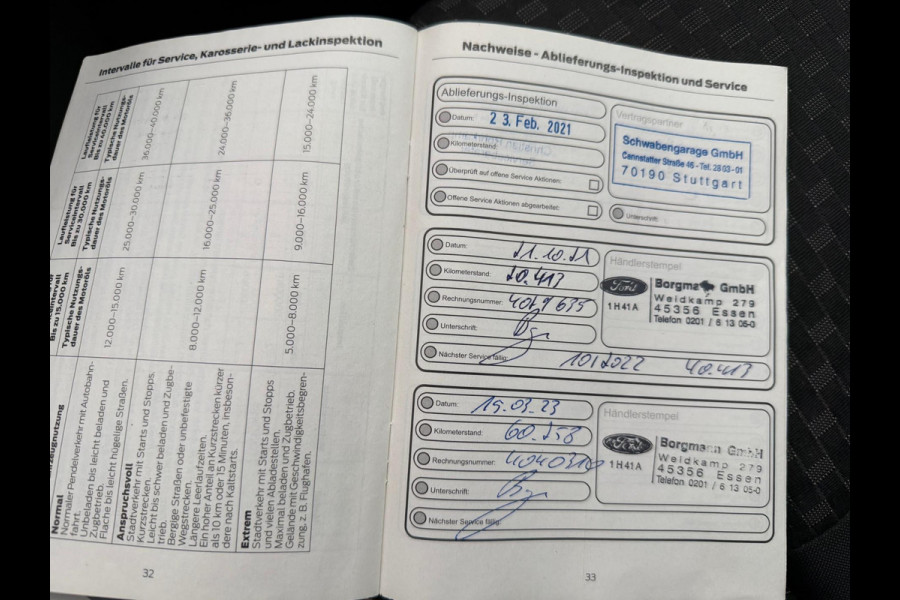 Intervalle für Service, Karosserie- und Lackinspektion
Laufleistung für
Serviceintervall
Bis zu 15.000 km
Typische Nutzungs-
dauer des Motoröls
Laufleistung für
Serviceintervall
Bis zu 30.000 km
Typische Nutzungs-
dauer des Motoröls
Laufleistung für
Serviceintervall
Bis zu 40.000 km
Typische Nutzungs-
dauer des Motoröls
Normal
Normaler Pendelverkehr mit Autobahn-
fahrt.
Unbeladen bis leicht beladen und
Zugbetrieb.
Flache bis leicht hügelige Straßen.
12.000–15.000 km
25.000–30.000 km
36.000–40.000 km
Anspruchsvoll
Stadtverkehr mit Starts und Stopps,
Kurzstrecken.
Leicht bis schwer beladen und Zugbe-
trieb.
Bergige Straßen oder unbefestigte
Wegstrecken.
Längere Leerlaufzeiten.
Ein hoher Anteil an Kurzstrecken kürzer
als 10 km oder 15 Minuten, insbeson-
dere nach Kaltstarts.
8.000–12.000 km
16.000–25.000 km
24.000–36.000 km
Extrem
Stadtverkehr mit Starts und Stopps
und vielen Abladestellen.
Maximal beladen und Zugbetrieb.
Gelände mit Geschwindigkeitsbegren-
zung, z. B. Flughafen.
5.000–8.000 km
9.000–16.000 km
15.000–24.000 km
32
Nachweise - Ablieferungs-Inspektion und Service
Ablieferungs-Inspektion
Datum: 23. Feb. 2021
Kilometerstand:
Überprüft auf offene Service Aktionen:
Offene Service Aktionen abgearbeitet:
Vertragspartner
Schwabengarage GmbH
Cannstatter Straße 46 - Tel. 28 03-01
70190 Stuttgart
Unterschrift:
Datum: 21.10.21
Kilometerstand: 20.413
Rechnungsnummer:
Unterschrift:
Nächster Service fällig: 10/2022 40.413
Händlerstempel
Ford
1H41A
Borgmann GmbH
Weidkamp 279
45356 Essen
Telefon 0201 / 6 13 05-0
Datum: 19.03.23
Kilometerstand: 60.258
Rechnungsnummer:
Unterschrift:
Nächster Service fällig:
Händlerstempel
Ford
1H41A
Borgmann GmbH
Weidkamp 279
45356 Essen
Telefon 0201 / 6 13 05-0
33